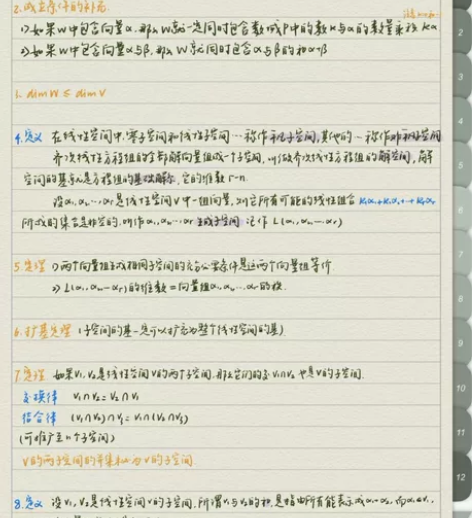 2.成立条件的补充
1)如果W中包含向量α,那么W就一定同时包含数域P中的数k与α的数量乘积kα
2)如果W中包含向量α与β,那么W就同时包含α与β的和α+β
dimW≤dimV
4.定义 在线性空间中,零子空间和线性子空间…称作平凡子空间,其他的…称作非平凡子空间
齐次线性方程组的全部解向量组成一个子空间,叫做齐次线性方程组的解空间,解
空间的基就是方程组的基础解系,它的维数r-n.
设α₁,α₂,…αr是线性空间V中一组向量,则它所有可能的线性组合k₁α₁+k₂α₂+…+krαr
所成的集合是非空的,叫作α₁,α₂…αr生成子空间 记作L(α₁,α₂,…αr)
5.定理 1)两个向量组生成相同子空间的充分必要条件是这两个向量组等价
2)L(α₁,α₂…αr)的维数=向量组α₁,α₂,…αr的秩.
6.扩基定理(子空间的基一定可以扩充为整个线性空间的基)
7.定理 如果V₁,V₂是线性空间V的两个子空间,那么它们的交V₁∩V₂也是V的子空间.
交换律 V₁∩V₂=V₂∩V₁
结合律 (V₁∩V₂)∩V₃=V₁∩(V₂∩V₃)
(可推广至n个子空间)
V的两子空间的并集 为V的子空间.
8.定义 设V₁,V₂是线性空间V的子空间,所谓V₁与V₂的和,是指由所有能表示成α₁+α₂,而α₁∈V₁,
2
3
4
5
6
7
8
9
10
11
12